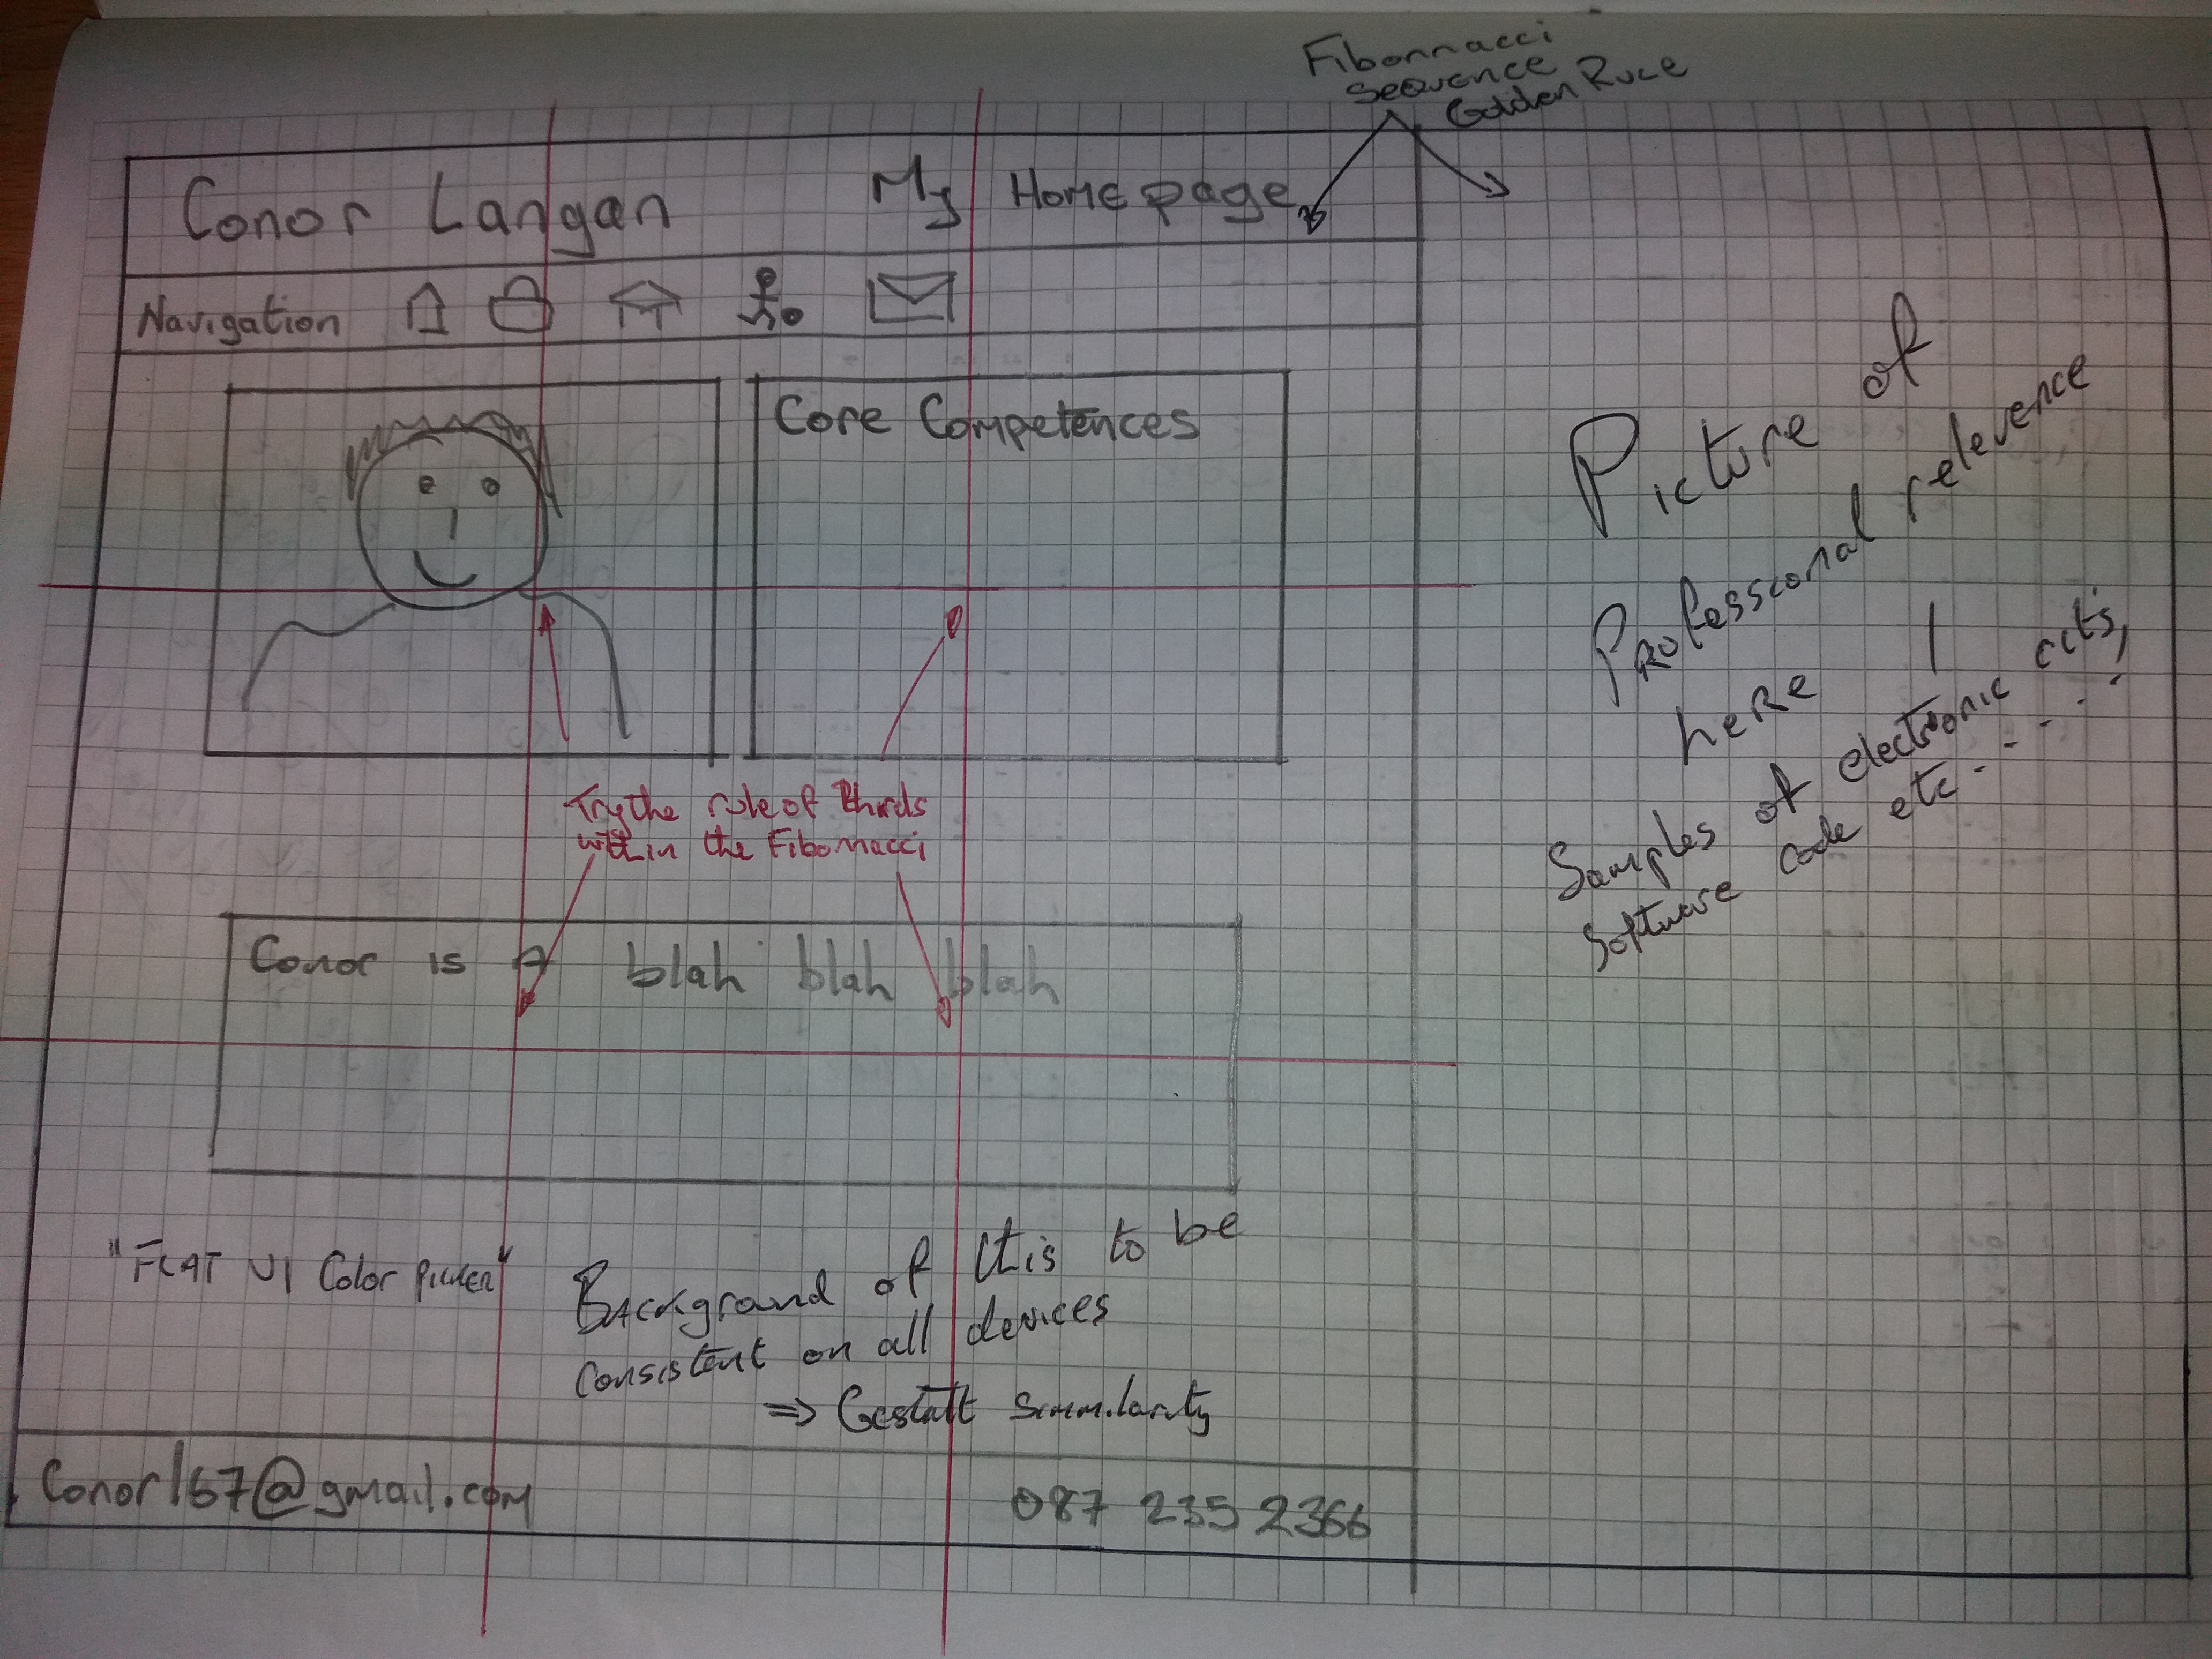 Fibonnacci
Sequence
Golden Rule
Conor Langan My Home page
Navigation
Core Competences
Picture
of
Professional relevence
here
Samples of electronic ccts,
Software code etc...
Try the rule of thirds
within the Fibonacci
Conor is a blah blah blah
"FLAT UI Color Picker"
Background of this to be
Consistent on all devices
=> Gestalt Simmilarity
Conor167@gmail.com 087 235 2366